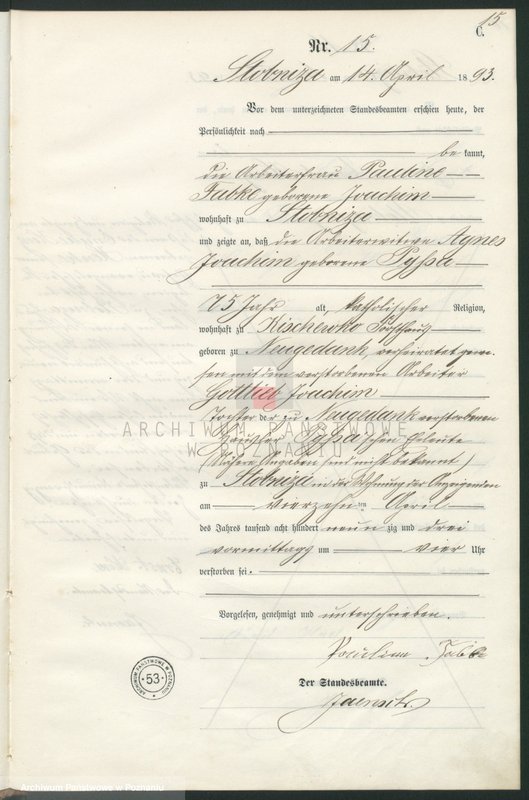 15
C.
Nr. 15.
Stobniza am 14. April 1893.
Vor dem unterzeichneten Standesbeamten erschien heute, der
Persönlichkeit nach
bekannt,
die Arbeiterfrau Pauline
Fabke geborene Joachim
wohnhaft zu Stobniza
und zeigte an, daß die Arbeiterwitwe Agnes
Joachim geborene Pyssa
75 Jahr alt, katholischer Religion,
wohnhaft zu Kischewko Forsthaus
geboren zu Neugedank, verheiratet gewe-
sen mit dem verstorbenen Arbeiter
Gottlieb Joachim
Tochter der zu Neugedank verstorbenen
Häusler Pyssa'schen Eheleute
(Nähere Angaben sind nicht bekannt)
zu Stobniza in der Wohnung der Anzeigenden
am vierzehnten April
des Jahres tausend acht hundert neunzig und drei
vormittags um vier Uhr
verstorben sei.
Vorgelesen, genehmigt und unterschrieben.
Pauline Fabke
Der Standesbeamte.
ARCHIWUM PAŃSTWOWE
W POZNANIU
ARCHIWUM PAŃSTWOWE W POZNANIU
53
Archiwum Państwowe w Poznaniu